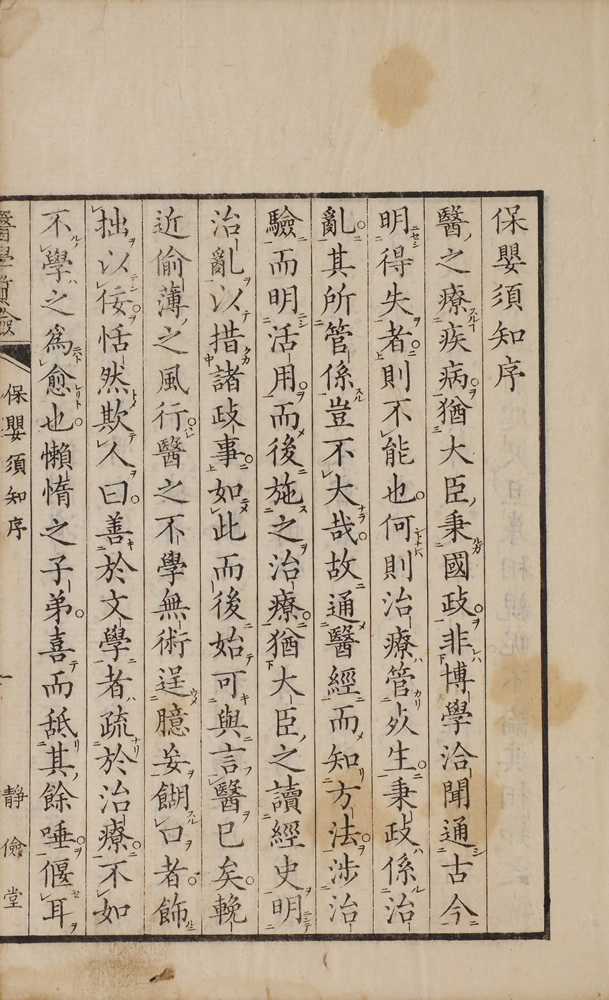 保嬰須知序
醫之療疾病猶大臣秉國政非博學洽聞通古今
明得失者則不能也何則治療管死生秉政係治
亂其所管係豈不大哉故通醫經而知方法涉治
驗而明活用而後施之治療猶大臣之讀經史明
治亂以措諸政事如此而後始可與言醫已矣輓
近偷薄之風行醫之不學無術逞臆妄餬口者飾
拙以佞恬然欺人曰善於文學者疏於治療不如
不學之爲愈也懶惰之子弟喜而舐其餘唾偃耳
保嬰須知序
一
靜儉堂